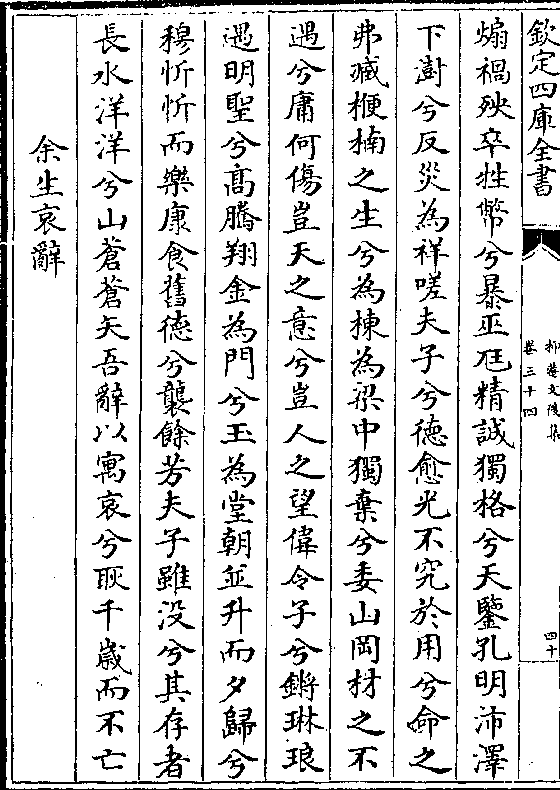 欽定四庫全書
卷三十四
四十
煽禍殃卒牲幣兮暴巫尫精誠獨格兮天鑒孔明沛澤
下澍兮反災為祥嗟夫子兮德愈光不究於用兮命之
弗臧楩楠之生兮為棟為梁中獨棄兮委山岡材之不
遇兮庸何傷豈天之意兮豈人之望偉令子兮鏘琳琅
遇明聖兮髙騰翔金為門兮玉為堂朝並升而夕歸兮
穆忻忻而樂康食舊德兮襲餘芳夫子雖没兮其存者
長水洋洋兮山蒼蒼矢吾辭以寓哀兮耿千歲而不亡
余生哀辭